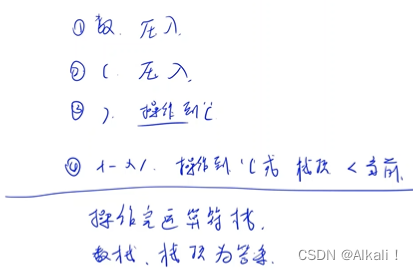 ① 数. 压入.
② ( 压入.
③ ). 操作到 '('
④ +-×/. 操作到 '(' 或 栈顶 < 当前.
操作完运算符栈.
数栈. 栈顶为答案.
CSDN @Alkali!